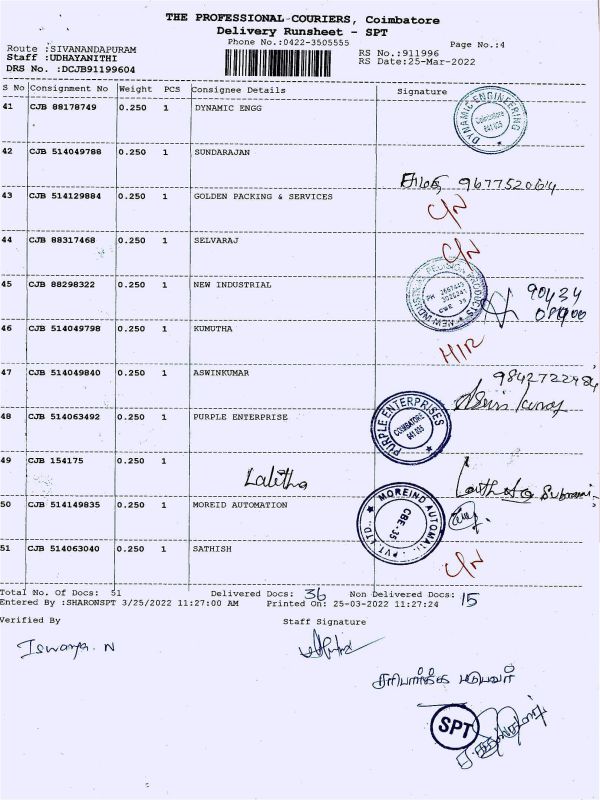 THE PROFESSIONAL COURIERS, Coimbatore
Delivery Runsheet - SPT
Phone No.:0422-3505555
Page No.:4
Route :SIVANANDAPURAM
RS No.:911996
Staff :UDHAYANITHI
RS Date:25-Mar-2022
DRS No. :DCJB91199604
S No Consignment No Weight PCS Consignee Details Signature
41 CJB 88178749 0.250 1 DYNAMIC ENGG
DYNAMIC ENGINEERING
Coimbatore
641 035
42 CJB 514049788 0.250 1 SUNDARAJAN
967752064
43 CJB 514129884 0.250 1 GOLDEN PACKING & SERVICES C/N
44 CJB 88317468 0.250 1 SELVARAJ C/N
45 CJB 88298322 0.250 1 NEW INDUSTRIAL
NEW INDUSTRIAL PRODUCTS
PH
CBE
90434
46 CJB 514049798 0.250 1 KUMUTHA H/R
47 CJB 514049840 0.250 1 ASWINKUMAR
48 CJB 514063492 0.250 1 PURPLE ENTERPRISE
PURPLE ENTERPRISES
COIMBATORE
641 035
49 CJB 154175 0.250 1 Lalitha
50 CJB 514149835 0.250 1 MOREID AUTOMATION
MOREIND AUTOMATI PVT. LTD.
CBE-35
51 CJB 514063040 0.250 1 SATHISH C/N
Total No. Of Docs: 51 Delivered Docs: 36 Non Delivered Docs: 15
Entered By :SHARONSPT 3/25/2022 11:27:00 AM Printed On: 25-03-2022 11:27:24
Verified By Staff Signature
Iswarya. N
சரிபார்த்த
SPT